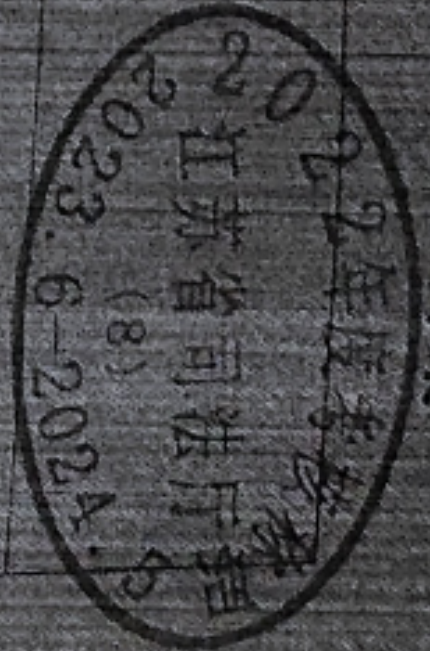 2022年度考核称职
江苏省司法厅
(8)
2023.6-2024.5